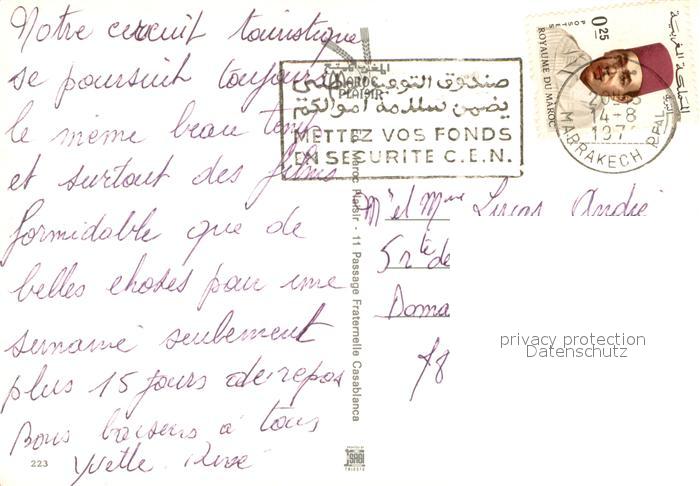 Notre circuit touristique
se poursuit toujours
le même beau temps
et surtout des films
formidable que de
belles choses pour une
semaine seulement
plus 15 jours de repos
Bons baisers à tous
Yvette René
223
MAROC
PLAISIR
صندوق التوفير الوطني
يضمن سلامة أموالكم
METTEZ VOS FONDS
EN SECURITE C.E.N.
0.25
POSTES
ROYAUME DU MAROC
المملكة المغربية
14-8
MARRAKECH PPAL
Maroc Plaisir - 11 Passage Fraternelle Casablanca
Mr et Mme Lucas André
5 rte de
Doma
78
privacy protection
Datenschutz